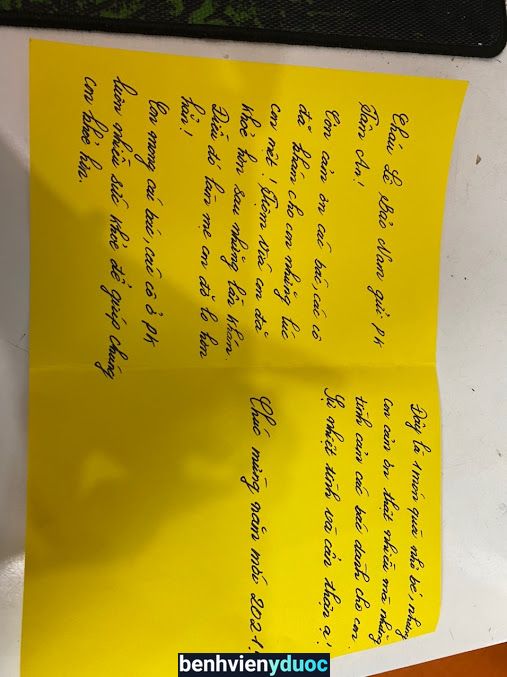 Cháu Lê Bảo Nam gửi PK
Tâm An!
Con cảm ơn các bác, các cô
đã khám cho con những lúc
con mệt! Hôm vừa con đã
khoẻ hơn sau những lần khám
Điều đó làm mẹ con đỡ lo hơn
hẳn!
Con mong các bác, các cô ở PK
luôn nhiều sức khoẻ để giúp chúng
con khoẻ hơn.
Đây là 1 món quà nhỏ bé, nhưng
con cảm ơn thật nhiều mà những
tình cảm các bác dành cho con.
Sự nhiệt tình và cẩn thận ạ!
Chúc mừng năm mới 2021!
benhvienyduoc